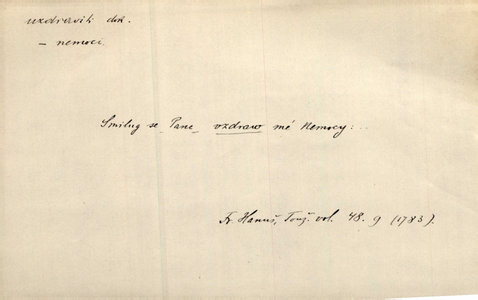 uzdraviti dok.
– nemoci.
Smilug se Pane vzdraw mé Nemocy:..
Fr. Hanuš, Touž. vol. 48. 9 (1783).